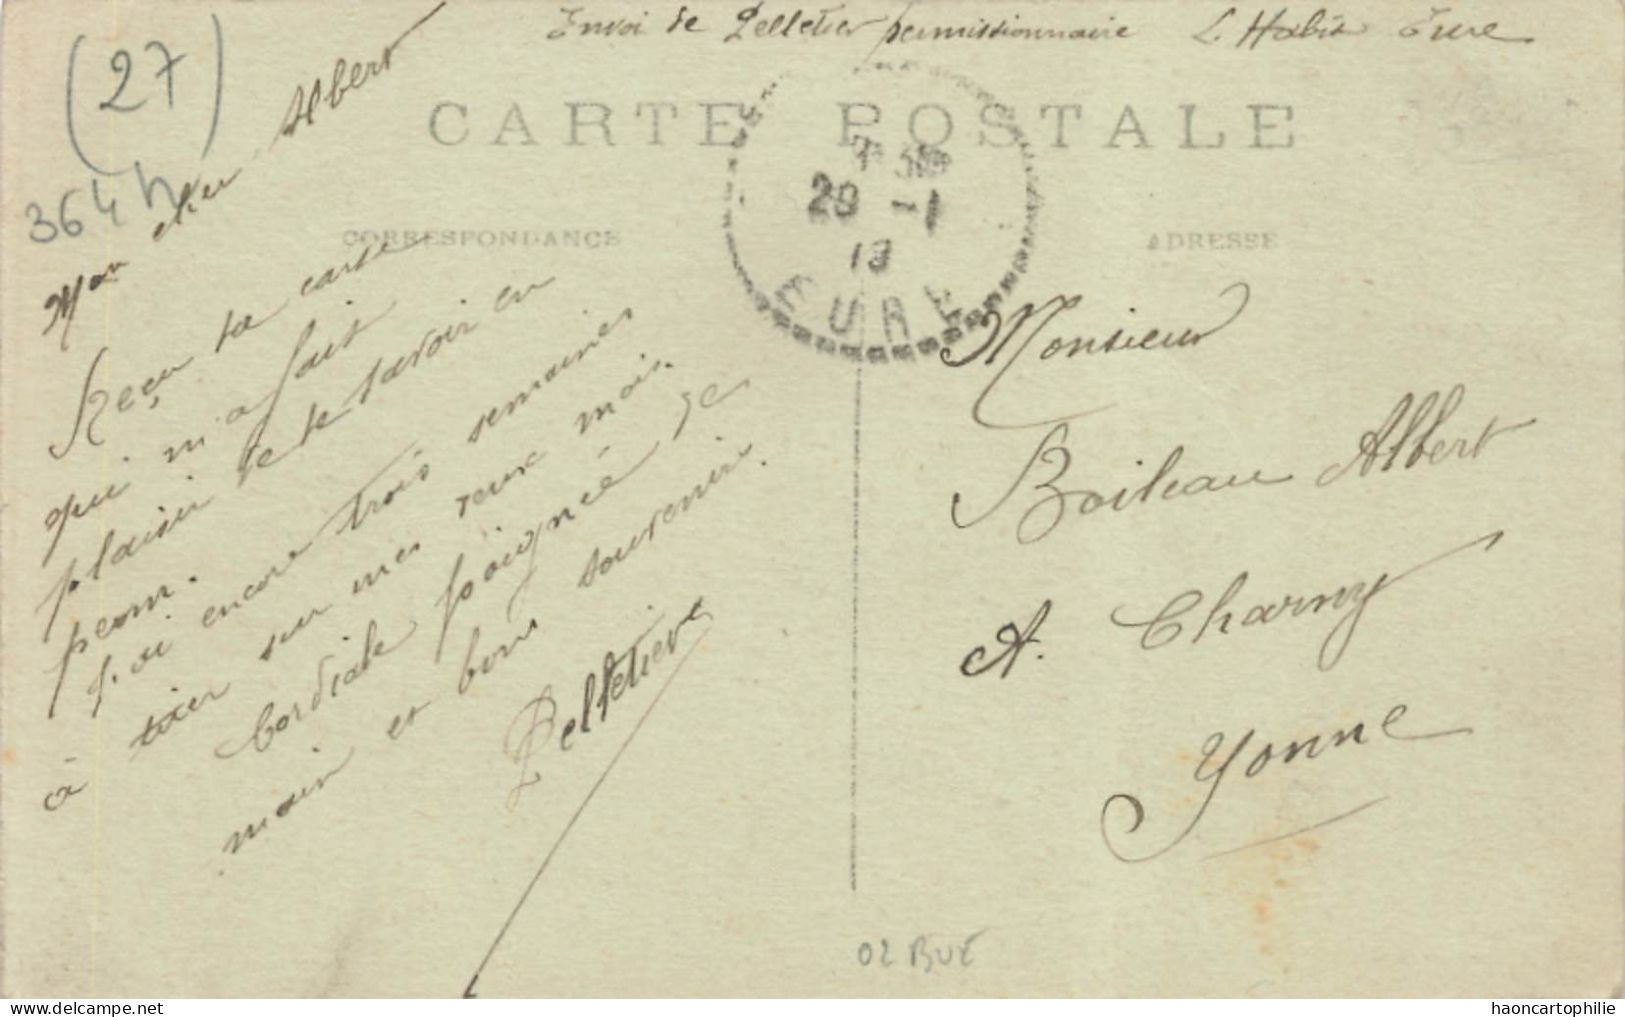 Envoi de Pelletier permissionnaire L'Habit Eure
(27)
364 h
CARTE POSTALE
CORRESPONDANCE
ADRESSE
7
29 -1
EURE
Mon cher Albert
Reçu ta carte
qui m'a fait
plaisir je te savoir en
perm.
J'ai encore trois semaines
à tirer sur mes deux mois.
Cordiale poignée de
main et bons souvenirs.
Pelletier
Monsieur
Boileau Albert
A. Charny
Yonne
02 BUE
delcampe.net
haoncartophilie